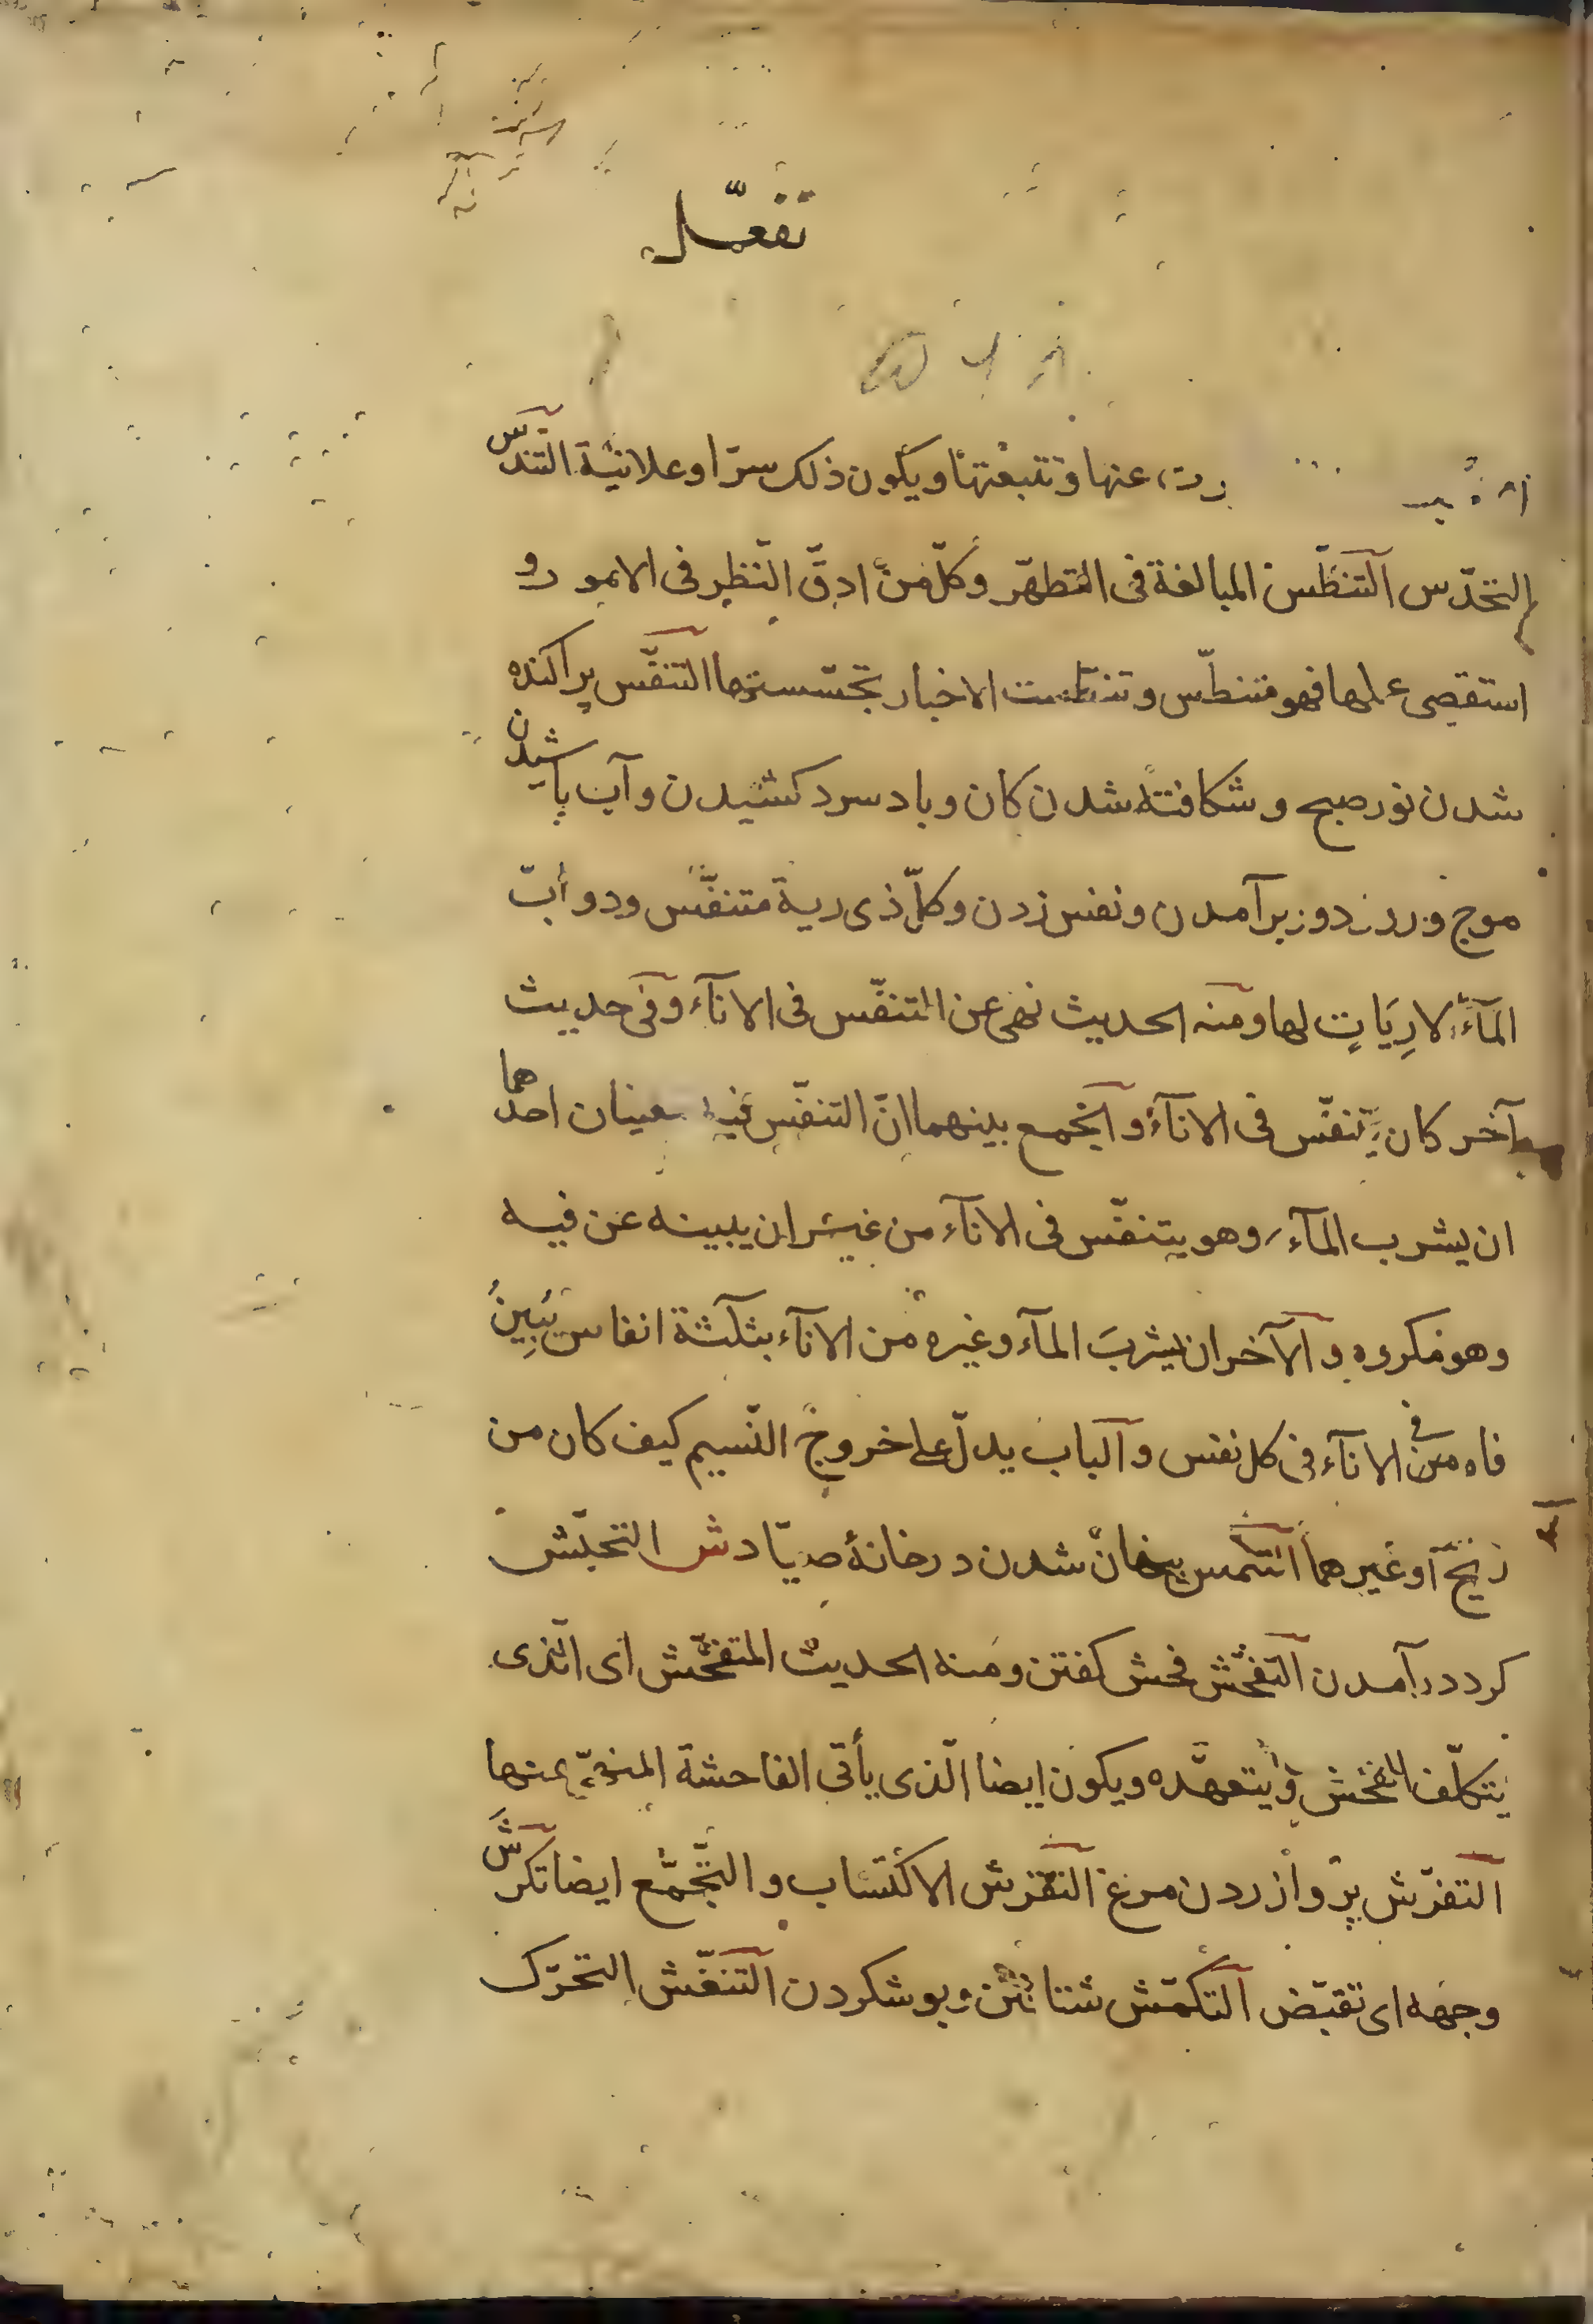 تفعّل
عنها وتتبعتها ويكون ذلك سرّا وعلانية التندّس
التحدّس التنطّس المبالغة فى التطهّر وكلّ من ادقّ النّظر فى الامور و
استقصى علمها فهو متنطّس وتنطّست الاخبار تجسّستها التنفّس پراكنده
شدن نور صبح و شكافته شدن كان وباد سرد كشيدن وآب پاشيدن
موج و روز برآمدن ونفس زدن وكلّ ذى رية متنفّس ودوابّ
المآء لا رِيَاتٍ لها ومنه الحديث نهى عن التنفّس فى الانآء وفى حديث
آخر كان يتنفّس فى الانآء والجمع بينهما انّ التنفّس فيه معينان احدهما
ان يشرب المآء وهو يتنفّس فى الانآء من غير ان يبينه عن فيه
وهو مكروه و الآخر ان يشربَ المآء وغيره من الانآء بثلثة انفاس يُبِينُ
فاه من الانآء فى كل نفس والباب يدلّ على خروج النّسيم كيف كان من
ريح او غيرهما التنمّس پنهان شدن در خانهٔ صيّاد ش التحبّش
كرد درآمدن التفحّش فحش كفتن ومنه الحديث المتفحّش اى الّذى
يتكلّف الفحش و يتعهّده ويكون ايضا الّذى يأتى الفاحشة المنهىّ عنها
التفرّش پرواز زدن مرغ التقرّش الاكتساب و التّجمّع ايضا تكرّشَ
وجهه اى تقبّض التكمّش شتافتن و پوشكردن التنغّش التحرّك